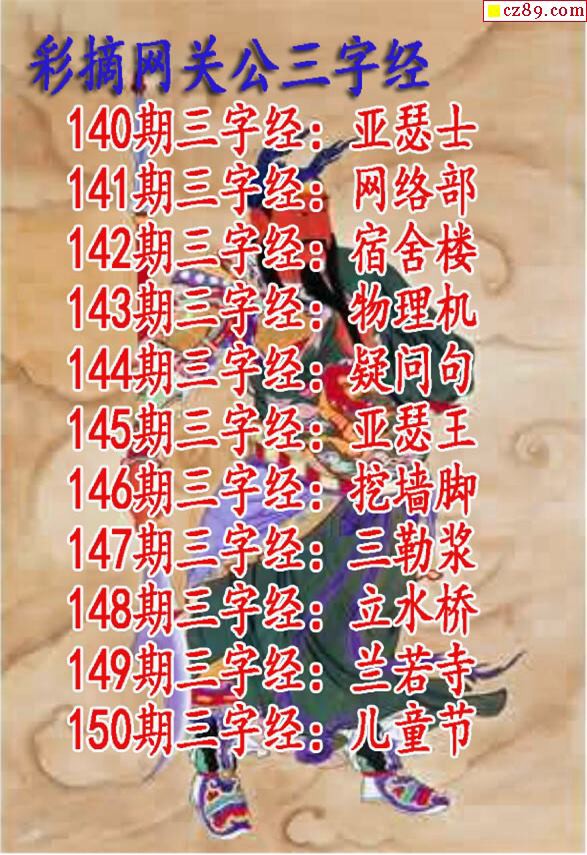 cz89.com
彩摘网关公三字经
140期三字经：亚瑟士
141期三字经：网络部
142期三字经：宿舍楼
143期三字经：物理机
144期三字经：疑问句
145期三字经：亚瑟王
146期三字经：挖墙脚
147期三字经：三勒浆
148期三字经：立水桥
149期三字经：兰若寺
150期三字经：儿童节